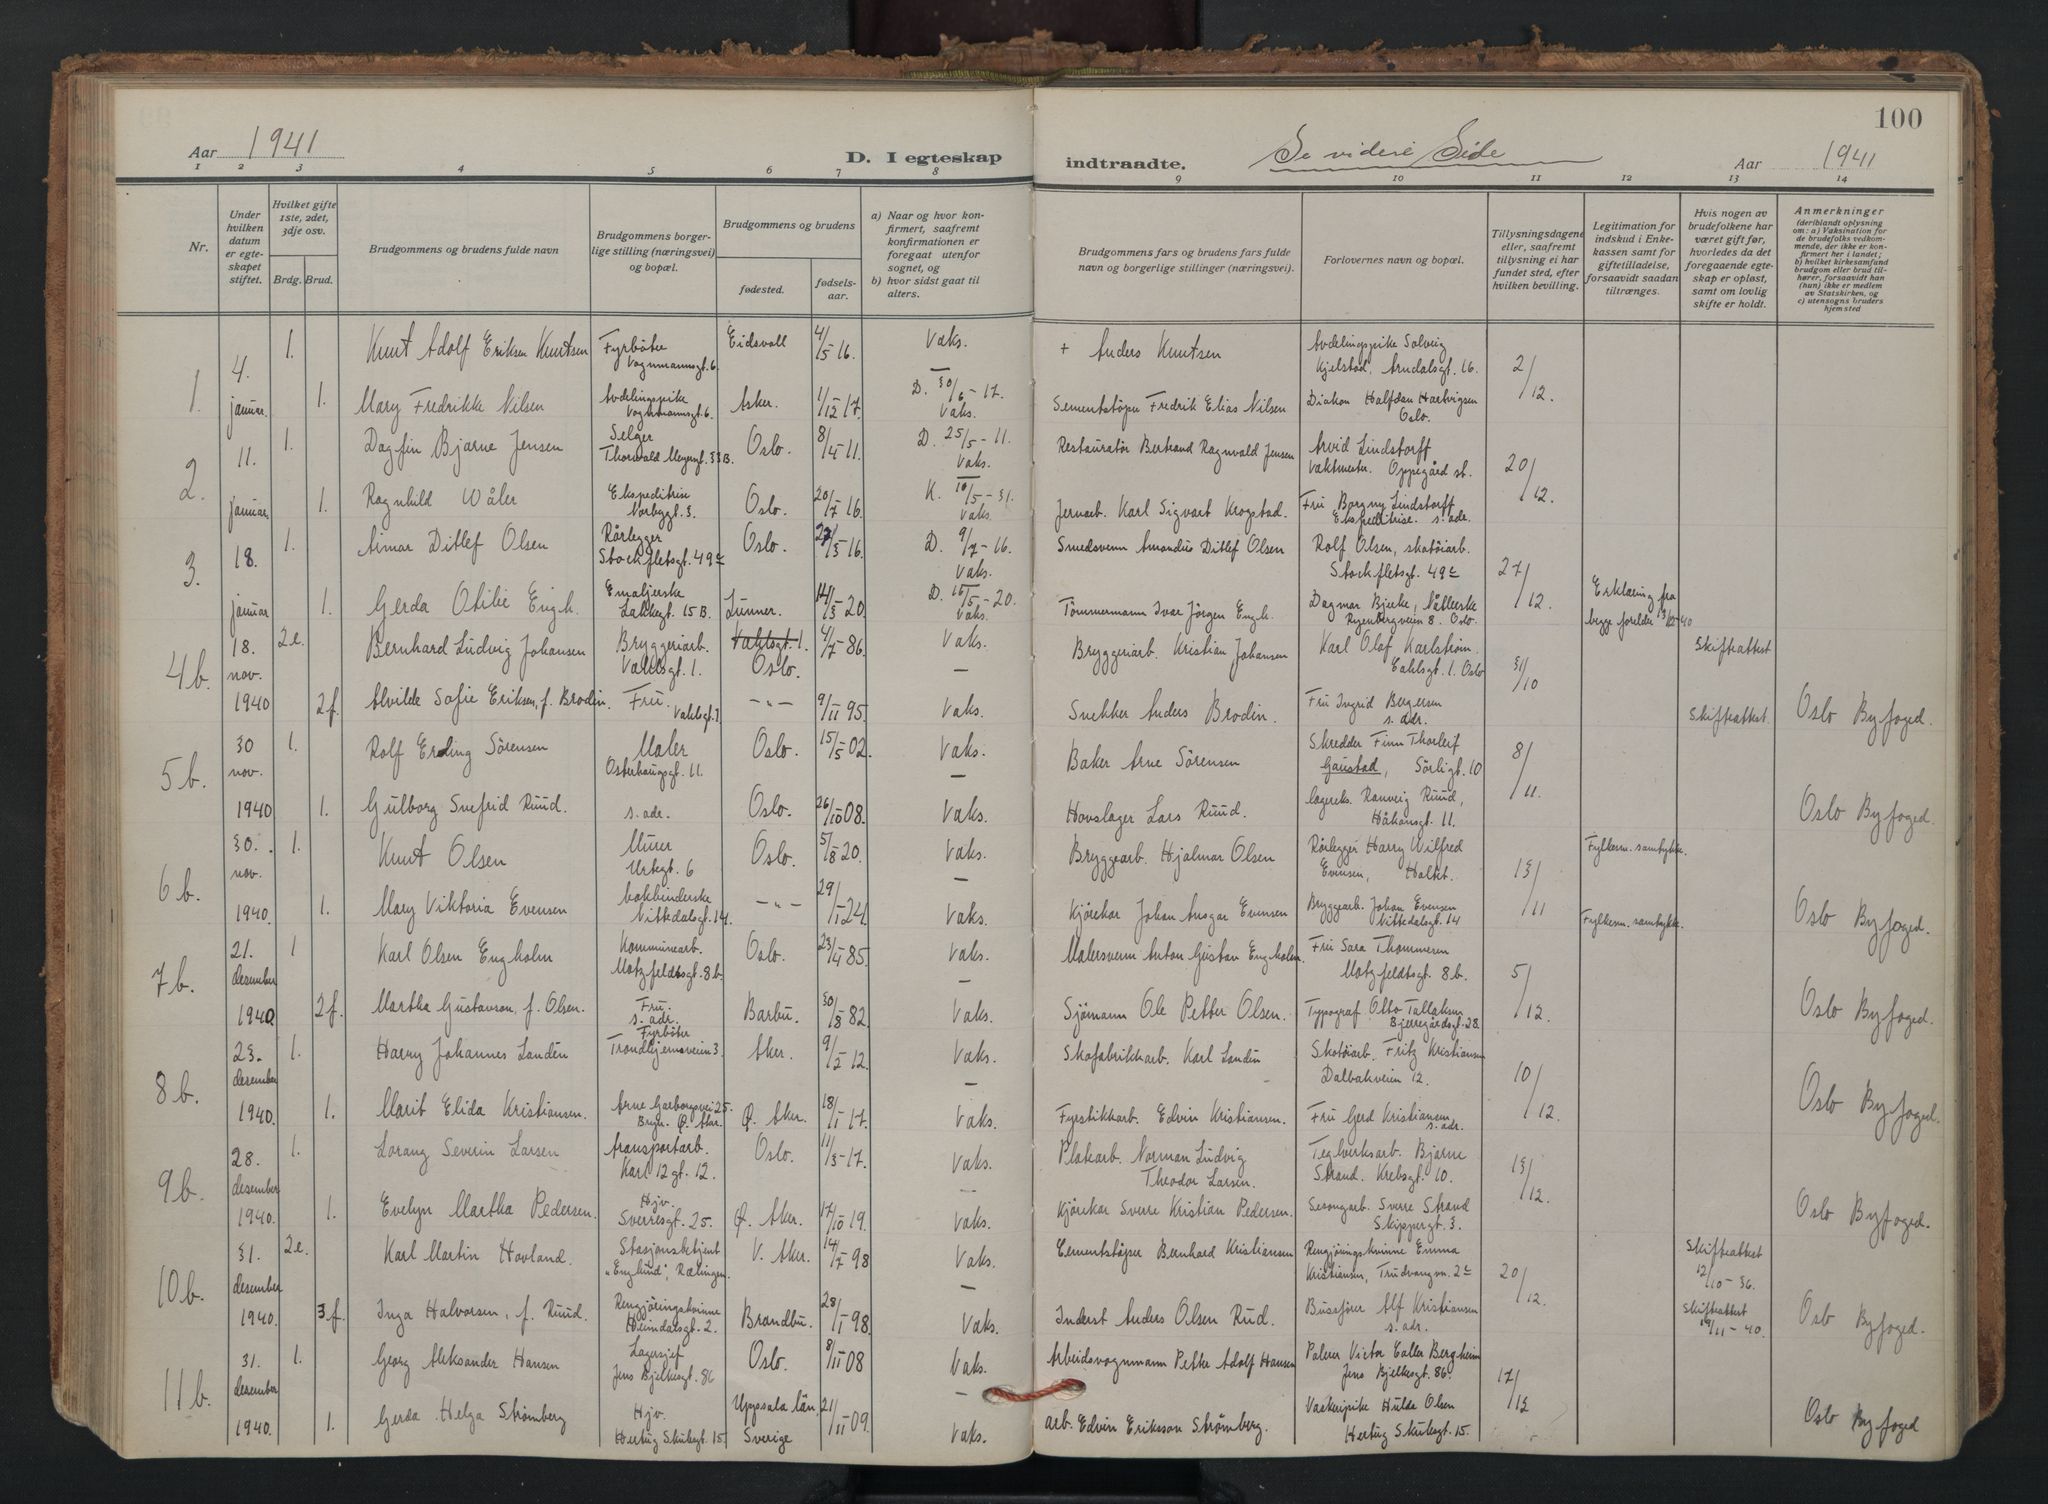 100
Aar 1941
D. I egteskap
indtraadte.
Se videre Side
Aar 1941
1 2 3 4 5 6 7 8 9 10 11 12 13 14
Nr.
Under hvilken datum er egteskapet stiftet.
Hvilket gifte 1ste, 2det, 3dje osv.
Brdg. Brud.
Brudgommens og brudens fulde navn
Brudgommens borgerlige stilling (næringsvei) og bopæl.
Brudgommens og brudens
fødested.
fødselsaar.
a) Naar og hvor konfirmert, saafremt konfirmationen er foregaat utenfor sognet, og
b) hvor sidst gaat til alters.
Brudgommens fars og brudens fars fulde navn og borgerlige stillinger (næringsvei).
Forlovernes navn og bopæl.
Tillysningsdagene eller, saafremt tillysning ei har fundet sted, efter hvilken bevilling.
Legitimation for indskud i Enkekassen samt for giftetilladelse, forsaavidt saadan tiltrænges.
Hvis nogen av brudefolkene har været gift før, hvorledes da det foregaaende egteskap er opløst, samt om lovlig skifte er holdt.
Anmerkninger
(deriblandt oplysning om: a) Vaksination for de brudefolks vedkommende, der ikke er konfirmert her i landet; b) hvilket kirkesamfund brudgom eller brud tilhører, forsaavidt han (hun) ikke er medlem av Statskirken, og c) utensogns bruders hjemsted
1. 4. januar. 1. Knut Adolf Eriksen Knutsen Fyrbøter Vognmannsgt. 6 Eidsvoll 4/5 16. Vaks. + Anders Knutsen Avdelingspike Solveig Kjelstad, Arndalsgt. 16. 2/12.
1. Mary Fredrikke Nilsen Avdelingspike Vognmannsgt. 6. Asker. 1/12 17. D. 30/6 - 17. Vaks. Sementstøper Fredrik Elias Nilsen Diakon Halfdan Hartvigsen Oslo.
2. 11. januar. 1. Dagfin Bjarne Jensen Selger Thorvald Meyersgt. 33 B. Oslo. 8/4 11. D. 25/5 - 11. Vaks. Restauratør Bertrand Ragnvald Jensen Arvid Lindstorff Vaktmester. Oppegård st. 20/12.
1. Ragnhild Wåler Ekspeditrise Norbygt. 3. Oslo. 20/7 16. K. 10/5 - 31. Vaks. Jernarb. Karl Sigvart Krogstad. Fru Borgny Lindstorff Ekspeditrise. s. adr.
3. 18. januar 1. Aimar Ditlef Olsen Rørlegger Stockfletsgt. 49c Oslo. 16. D. 9/7 - 16. Vaks. Smedsvenn Amandus Ditlef Olsen Rolf Olsen, skotøiarb. Stockfletsgt. 49c 27/12.
1. Gerda Otilie Engh. Emaljerske Lakkegt. 15 B. Lunner. 14/3 20. D. 16/5 - 20. Vaks. Tømmermann Ivar Jørgen Engh. Dagmar Bjerke, Nåtlerske Ryenbergveien 8. Oslo. Erklæring fra begge foreldre 13/12-40
4b. 18. nov. 1940 2e. Bernhard Ludvig Johansen Bryggeriarb. Vahlsgt. 1. Vahlsgt. 1. Oslo. 4/7 86. Vaks. Bryggeriarb. Kristian Johansen Karl Olaf Karlstrøm. Vahlsgt. 1. Oslo 31/10 Skifteattest
2f. Alvilde Sofie Eriksen, f. Brodin. Fru. Vahlsgt. 1 -"- 9/11 95. Vaks. Snekker Anders Brodin. Fru Ingrid Bergersen s. adr. Skifteattest. Oslo Byfoged.
5b. 30 nov. 1940 1. Rolf Erling Sørensen Maler Osterhausgt. 11. Oslo. 15/5 02. Vaks. Baker Arne Sørensen Skredder Finn Thorleif Gaustad, Sörligt. 10 8/11.
1. Gulborg Snefrid Ruud. s. adr. Oslo. 26/10 08. Vaks. Hovslager Lars Ruud. lagereks. Ranveig Ruud, Håkonsgt. 11. Oslo Byfoged.
6b. 30. nov. 1940. 1. Knut Olsen Murer Urtegt. 6 Oslo. 5/8 20. Vaks. Bryggearb. Hjalmar Olsen Rørlegger Harry Wilfred Evensen, 13/11 Fylkesm. samtykke.
1. Mary Viktoria Evensen bokbinderske Nittedalsgt. 14. -"- 29/1 24. Vaks. Kjørekar Johan Ansgar Evensen Bryggearb. Johan Evensen Nittedalsgt. 14 Fylkesm. samtykke. Oslo Byfoged.
7b. 21. desember 1940. 1 Karl Olsen Engholm Kommunearb. Motzfeldtsgt. 8b. Oslo. 23/4 85. Vaks. Malersvenn Anton Gustav Engholm. Fru Sara Thommesen Motzfeldtsgt. 8b. 5/12.
2f. Martha Gustavson, f. Olsen. Fru. s. adr. Barbu. 30/8 82. Vaks. Sjømann Ole Petter Olsen. Typograf Otto Tallaksen Bjerregårdsgt. 28. Oslo Byfoged.
8b. 23. desember 1940. 1. Harry Johannes Landén Fyrbøter Trondhjemsveien 3. Aker. 9/2 12. Vaks. Skofabrikkarb. Karl Landén Skotøiarb. Fritz Kristiansen Dalbakveien 12. 10/12.
1. Marit Elida Kristiansen. Arne Garborgsvei 25. Bryn. Ø. Aker. Ø. Aker. 18/1 17. Vaks. Fyrstikkarb. Edvin Kristiansen. Fru Gerd Kristiansen s. adr. Oslo Byfoged.
9b. 28. desember 1940. 1. Lorang Severin Larsen transportarb. Karl 12 gt. 12. Oslo. 11/3 - 17. Vaks. Platearb. Norman Ludvig Theodor Larsen. Teglverksarb. Bjarne Strand. Krebsgt. 10. 13/12.
1. Evelyn Martha Pedersen. Hjv. Sverresgt. 25. Ø. Aker. 17/10 19. Vaks. Kjørekar Sverre Kristian Pedersen. Sesongarb. Sverre Strand Skippergt. 3. Oslo Byfoged.
10b. 31. desember 1940. 2e. Karl Martin Hovland. Stasjonsbetjent "Englund", Rælingen. V. Aker. 14/7 98 Vaks. Cementstøper Bernhard Kristiansen Rengjøringskvinne Emma Kristiansen, Trudvangvn. 2c 20/12. Skifteattest 12/10 - 36.
3.f. Inga Halvorsen, f. Ruud. Rengjøringskvinne Heimdalsgt. 2. Brandbu. 28/1 98. Vaks. Inderst Anders Olsen Rud. Bussfører Alf Kristiansen s. adr. Skifteattest 19/11 - 40. Oslo Byfoged.
11b. 31. desember 1940. 1. Georg Aleksander Hansen Lagersjef Jens Bjelkesgt. 86 Oslo. 8/11 08 Vaks. Arbeidsvognmann Petter Adolf Hansen Palerer Victor Bergheim Jens Bjelkesgt. 86. 17/12
1. Gerda Helga Strömberg Hjv. Hertug Skulesgt. 15. Uppsala län, Sverige 21/11 09. Vaks. arb. Edvin Eriksson Strömberg. Vaskeripike Hulda Olsen Hertug Skulesgt. 15. Oslo Byfoged